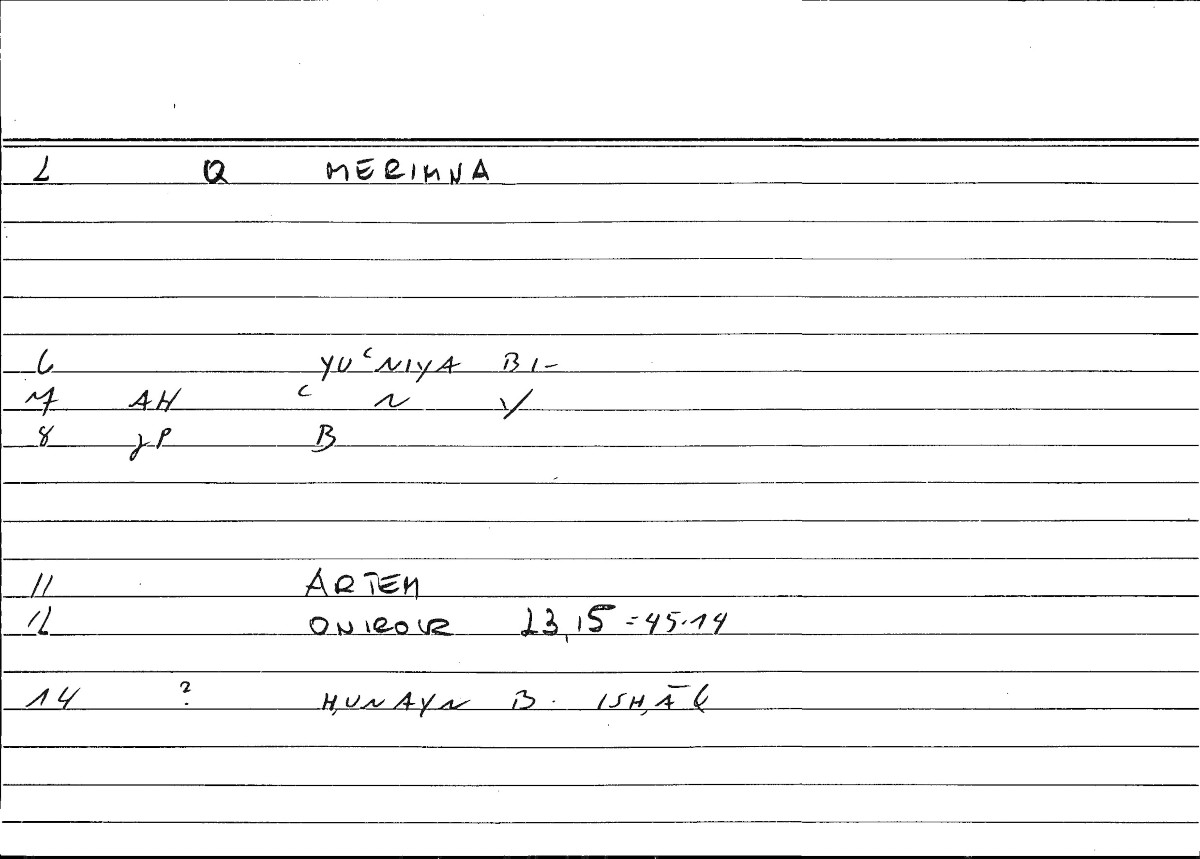 2 Q MERIMNA
6 YUʿNIYA BI-
7 AH ʿ N Y
8 JP B
11 ARTEM
12 ONIROCR 23,15 = 45.14
14 ? ḤUNAYN B. ISḤĀQ